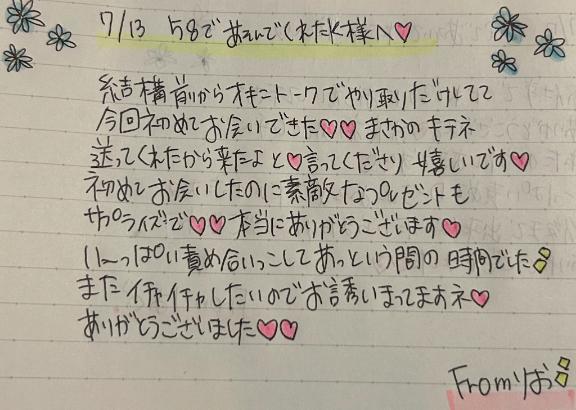 7/13 58で あそんでくれたK様へ♡
結構前からオキニトークでやり取りだけしてて
今回初めてお会いできた♡♡ まさかの キテネ
送ってくれたから来たよ と♡言ってくださり 嬉しいです♡
初めてお会いしたのに素敵なプレゼントも
サプライズで♡♡本当にありがとうございます♡
い〜っぱい責め合いっこしてあっという間の時間でした
また イチャイチャしたいのでお誘いまってますネ♡
ありがとうございました♡♡
Fromりお